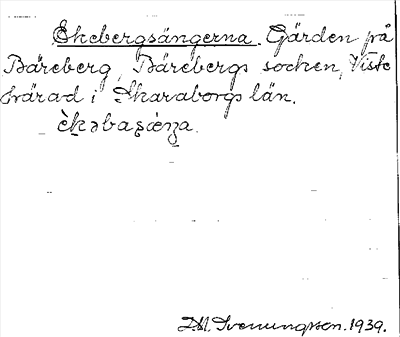 Ekebergsängerna. Gärden på
Bäreberg, Bärebergs socken, Viste
härad i Skaraborgs län.
èkəbaʂæ̀ŋa.
D.M. Svenungsson. 1939.